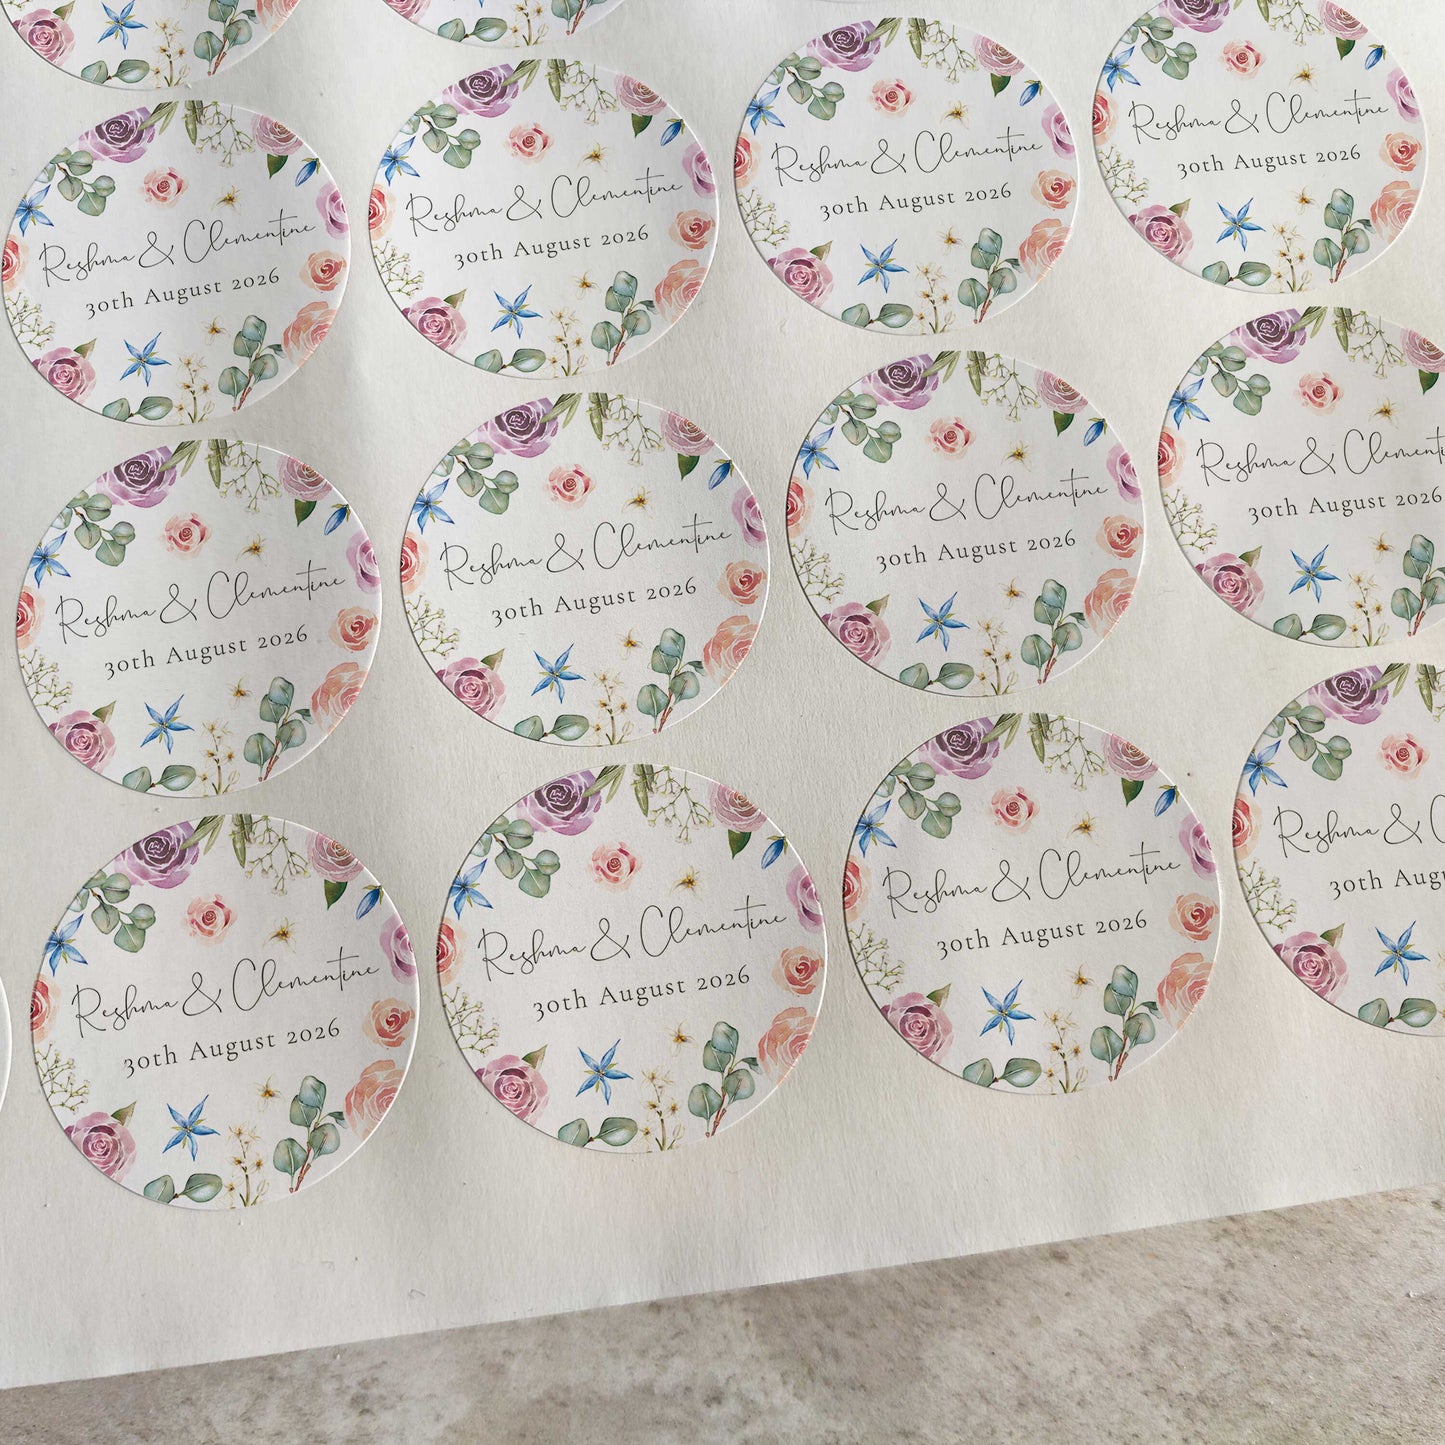 Reshma & Clementine
30th August 2026
Reshma & Clementine
30th August 2026
Reshma & Clementine
30th August 2026
Reshma & Clementine
30th August 2026
Reshma & Clementine
30th August 2026
Reshma & Clementine
30th August 2026
Reshma & Clementine
30th August 2026
Reshma & Clementine
30th August 2026
Reshma & Clementine
30th August 2026
Reshma & Clementine
30th August 2026
Reshma & Clementine
30th August 2026
Reshma & C
30th Augu